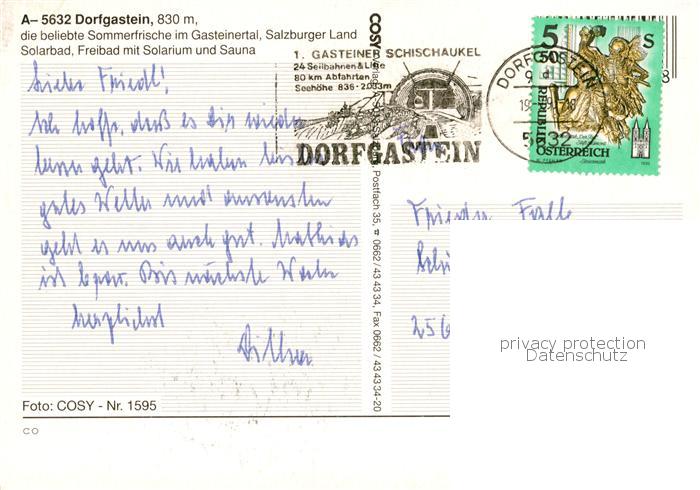 A– 5632 Dorfgastein, 830 m,
die beliebte Sommerfrische im Gasteinertal, Salzburger Land
Solarbad, Freibad mit Solarium und Sauna
Lieber Friedl!
Ich hoffe, daß es Dir wieder
besser geht. Wir haben bis
gutes Wetter und ansonsten
geht es uns auch gut. Mathias
ist brav. Bis nächste Woche
herzlichst
Foto: COSY - Nr. 1595
CO
COSY
Postfach 35, ☎ 0662 / 43 43 34, Fax 0662 / 43 43 34-20
1. GASTEINER SCHISCHAUKEL
24 Seilbahnen & Lifte
80 km Abfahrten
Seehöhe 836 - 2033m
DORFGASTEIN
DORFGASTEIN
5632
5 50 S
REPUBLIK
ÖSTERREICH
256
privacy protection
Datenschutz